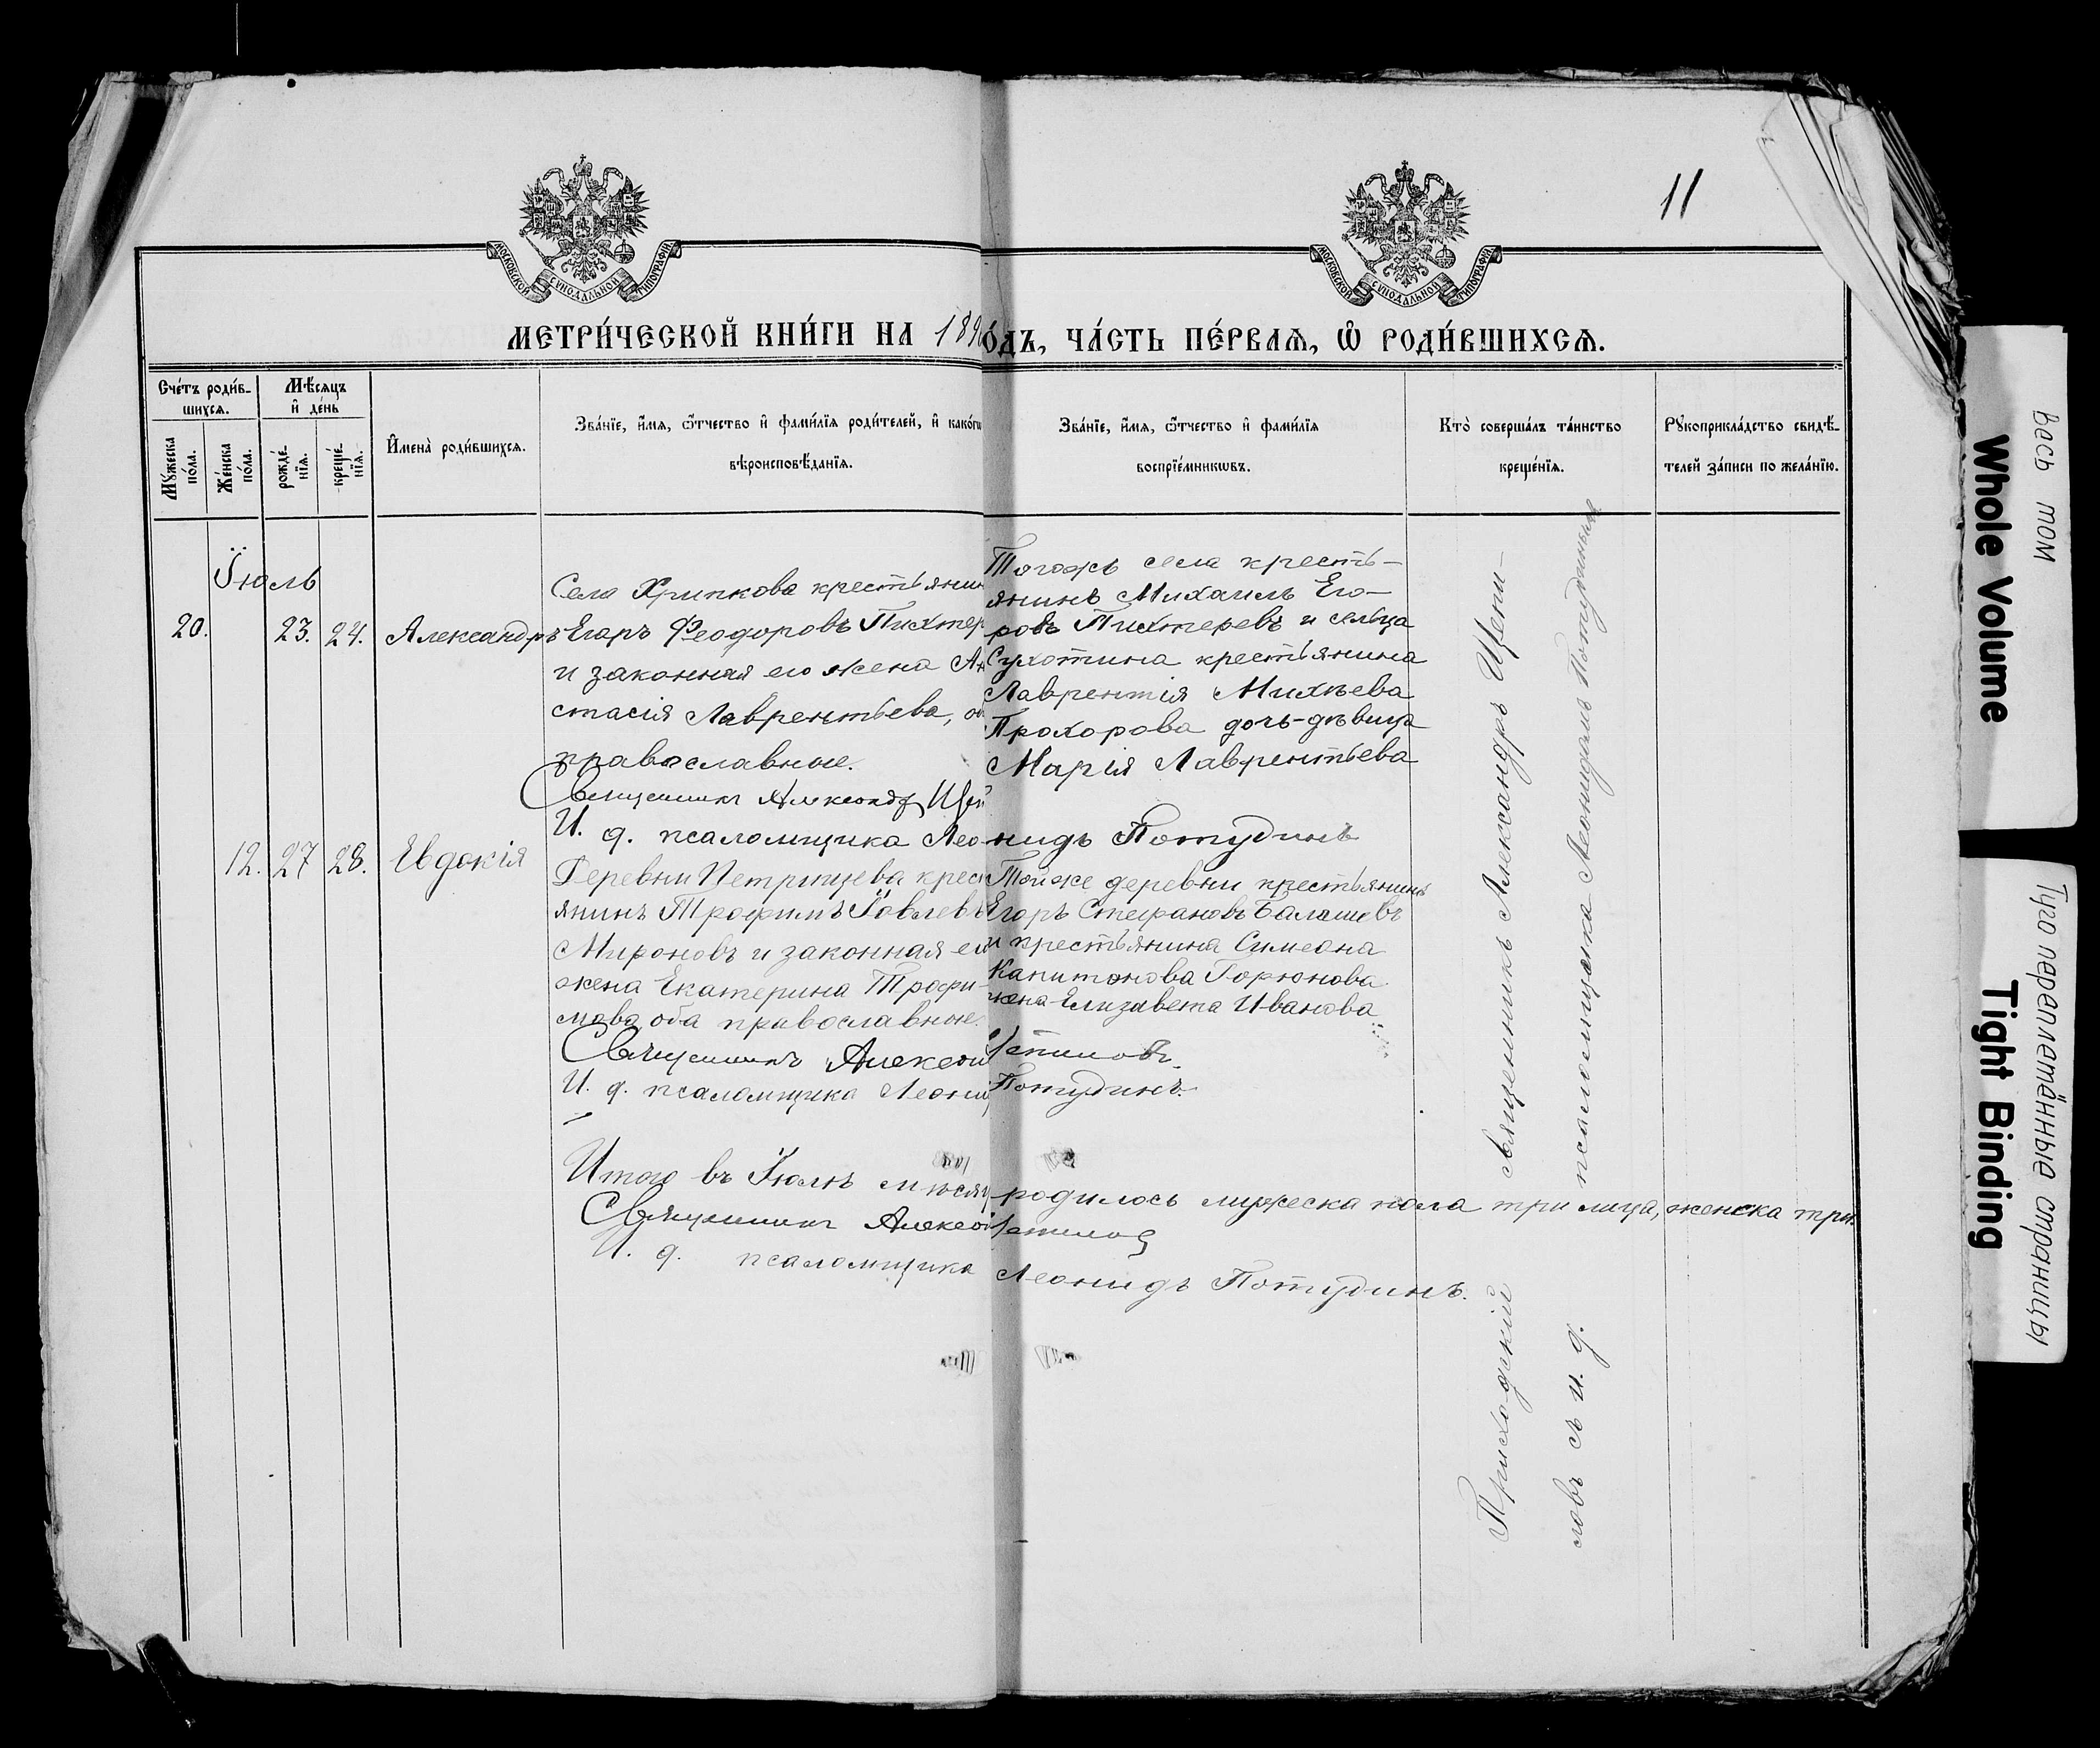 11
МОСКОВСКОЙ СѴНОДАЛЬНОЙ ТИПОГРАФІИ
МОСКОВСКОЙ СѴНОДАЛЬНОЙ ТИПОГРАФІИ
МЕТРИ́ЧЕСКОЙ КНИ́ГИ НА 189
О́ДЪ, ЧА́СТЬ ПЕ́РВАѦ, Ѿ РОДИ́ВШИХСѦ.
Сче́тъ роди́в-
шихсѧ.
Мꙋ́жеска по́ла.
Же́нска по́ла.
Мѣ́сѧцъ
и҆ де́нь
рожде́-
нїѧ.
креще́-
нїѧ.
И҆мена̀ роди́вшихсѧ.
Зва́нїе, и҆́мѧ, ѻ҆́тчество и҆ фами́лїѧ роди́телей, и҆ како́гѡ
вѣроисповѣ́данїѧ.
Зва́нїе, и҆́мѧ, ѻ҆́тчество и҆ фами́лїѧ
воспрїе́мникѡвъ.
Кто̀ соверша́лъ та́инство
креще́нїѧ.
Рꙋкоприкла́дство свидѣ́-
телей за́писи по жела́нїю.
Іюль
20. 23. 24. Александръ
Села Хрипкова крестьянин
Егоръ Феодоровъ Пихтер
и законная его жена Ан
стасія Лаврентьева, об
православные.
Священникъ Александр Щеп
И. д. псаломщика Лео
Тогожъ села кресть-
янинъ Михаилъ Его-
ровъ Пихтеревъ и сельца
Сухотина крестьянина
Лаврентія Михѣева
Прохорова дочь-дѣвица
Марія Лаврентьева
нидъ Потудинъ
12. 27 28. Евдокія
Деревни Петрищева крес
янинъ Трофимъ Іовлевъ
Мироновъ и законная ег
жена Екатерина Трофи-
мова, оба православные.
Священникъ Алекса
И. д. псаломщика Леони
Тойже деревни крестьянинъ
Егоръ Стефановъ Балашовъ
и крестьянина Симеона
Капитонова Горюнова
жена Елизавета Иванова
Потудинъ.
Итого въ Іюлѣ мѣсяц
родилось мужеска пола три лица, женска три.
Священникъ Алекса
И. д. псаломщика
Леонидъ Потудинъ.
Приходскій священникъ Александръ Щепи-
ловъ съ и. д. псаломщика Леонидомъ Потудинымъ
Весь том
Whole Volume
Туго переплетённые страницы
Tight Binding